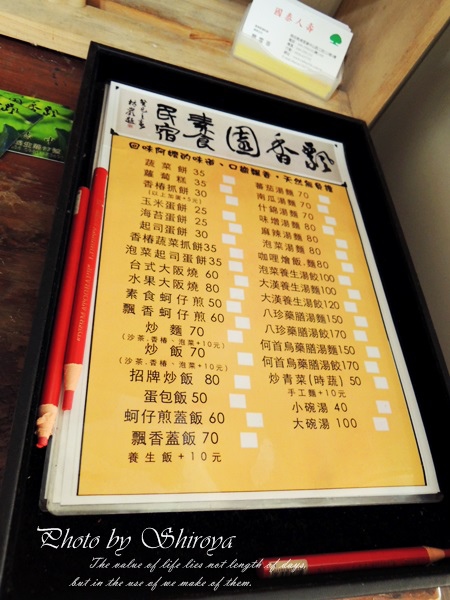 國泰人壽
飄香園素養
民宿
回味阿嬤的味道、口齒飄香，天然無負擔
蔬菜餅 35
蘿蔔糕 35
香椿抓餅 30
(以上加蛋+5元)
玉米蛋餅 25
海苔蛋餅 25
起司蛋餅 30
香椿蔬菜抓餅35
泡菜起司蛋餅35
台式大阪燒 60
水果大阪燒 80
素食蚵仔煎50
飄香蚵仔煎60
炒麵 70
(沙茶.香椿、泡菜+10元)
炒飯 70
(沙茶.香椿、泡菜+10元)
招牌炒飯 80
蛋包飯 50
蚵仔煎蓋飯 60
飄香蓋飯 70
養生飯+10元
蕃茄湯麵 70
南瓜湯麵 80
什錦湯麵 70
味增湯麵 80
麻辣湯麵 80
泡菜湯麵 80
咖哩燴飯.麵80
泡菜養生湯餃100
大漢養生湯麵100
大漢養生湯餃120
八珍藥膳湯麵150
八珍藥膳湯餃170
何首烏藥膳湯麵150
何首烏藥膳湯餃170
炒青菜(時蔬) 50
手工麵+10元
小碗湯 40
大碗湯 100
Photo by Shiroya
The value of life lies not length of days,
but in the use of we make of them.